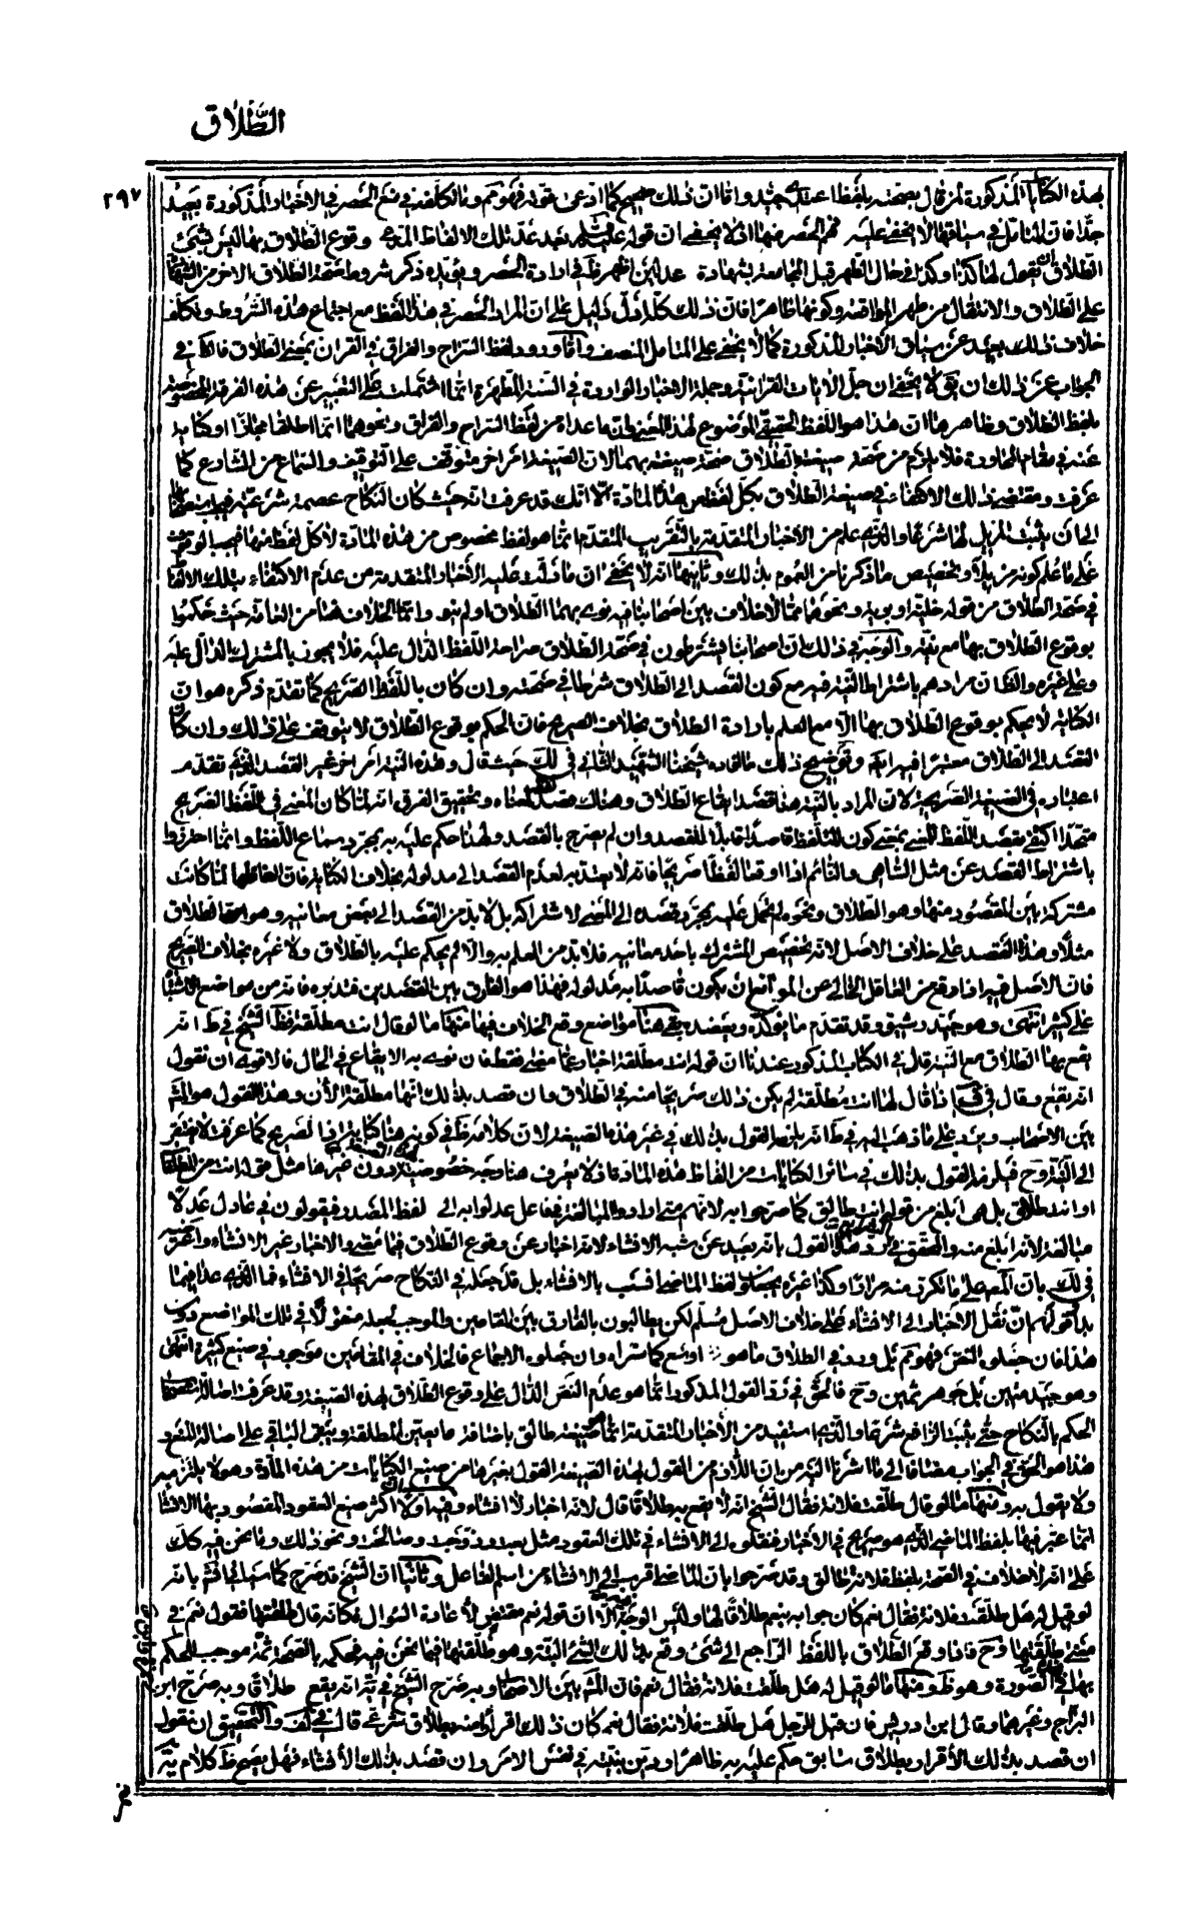 الطلاق
٢٩٧
بهذه الكنايات المذكورة لم نقل بصحته بلفظ اعتدي جيد واما ان ذلك صحيح كما ادعى قوته فهو ثم وما تكلفه في منع الحصر في الاخبار المذكورة بعيد
جدا فان المتامل في سياقها لا يخفى عليه فهم الحصر منها اذ لا يخفى ان قوله عليه السلام بعد عد تلك الالفاظ المدعى وقوع الطلاق بها ليس بشئ
الطلاق ان يقول لها كذا وكذا في حال الطهر قبل المجامعة بشهادة عدلين اظهر ظ في ارادة الحصر ويؤيده ذكر شروط صحة الطلاق الاخر من الشهادة
على الطلاق والانتقال من طهر المواقعة وكونها طاهرا فان ذلك كله ادل دليل على ان المراد الحصر في هذا اللفظ مع اجتماع هذه الشروط وتكلف
خلاف ذلك بعيد عن سياق الاخبار المذكورة كما لا يخفى على المتامل المنصف واما ورود لفظ السراح والفراق في القران بمعنى الطلاق فالكلام في
الجواب عن ذلك ان يقال لا يخفى ان جل الايات القرانية وجملة الاخبار الواردة في السنة المطهرة انما اشتملت على التعبير عن هذه الفرقة المخصوصة
بلفظ الطلاق وظاهرها ان هذا هو اللفظ الحقيقي الموضوع لهذا المعنى وان ما عداه من لفظ السراح والفراق ونحوهما انما اطلقا مجازا او كناية
عنه في مقام المحاورة فلا يلزم من صحة صيغة الطلاق صحة صيغته بهما لان الصيغة امر اخر متوقف على التوقيف والسماع من الشارع كما
عرفت ومقتضى ذلك الاكتفاء في صيغة الطلاق بكل لفظ من هذه المادة الا انك قد عرفت انه حيث كان النكاح عصمة شرعية فيجب استصحابها
الى ان يثبت المزيل لها شرعا والذي علم من الاخبار المتقدمة بالتقريب المتقدم انما هو لفظ مخصوص من هذه المادة لا كل لفظ منها فيجب الوقوف
على ما علم كونه مزيلا وتخصيص ما ذكرنا من العموم بذلك وثانيها انه لا يخفى ان ما دلت عليه الاخبار المتقدمة من عدم الاكتفاء بتلك الالفاظ
في صحة الطلاق من قوله خلية او برية ونحوهما مما لا خلاف بين اصحابنا فيه نوى بهما الطلاق او لم ينو وانما الخلاف هنا من العامة حيث حكموا
بوقوع الطلاق بها مع نيته والوجه في ذلك ان اصحابنا يشترطون في صحة الطلاق صراحة اللفظ الدال عليه فلا يجوز بالمشترك الدال عليه
وعلى غيره والظ ان مرادهم باشتراط النية فيه مع كون القصد الى الطلاق شرطا في صحته وان كان باللفظ الصريح كما تقدم ذكره هو ان
الكناية لا يحكم بوقوع الطلاق بها الا مع العلم بارادة الطلاق بخلاف الصريح فان الحكم بوقوع الطلاق لا يتوقف على ذلك وان كان
القصد الى الطلاق معتبرا فيه ايضا وتوضيح ذلك ما افاده شيخنا الشهيد الثاني في لك حيث قال وهذه النية امر اخر غير القصد الذي تقدم
اعتباره في الصيغة الصريحة لان المراد بالنية هنا قصد ايقاع الطلاق وهناك قصد معناه وتحقيق الفرق انه لما كان المعنى في اللفظ الصريح
متحدا اكتفى بقصد اللفظ لمعنى بمعنى كون المتلفظ قاصدا قابلا للقصد وان لم يصرح بالقصد ولهذا حكم عليه به بمجرد سماع اللفظ وانما احترزوا
باشتراط القصد عن مثل الساهي والنائم اذا اوقعا لفظا صريحا فانه لا يعتد به لعدم القصد الى مدلوله بخلاف الكناية فان الفاظها لما كانت
مشتركة بين المقصود منها وهو الطلاق ونحوه لم يحمل عليه بمجرد قصده الى المعنى لاشتراكه بل لا بد من القصد الى بعض معانيه وهو الطلاق
مثلا وهذا القصد على خلاف الاصل لانه تخصيص المشترك باحد معانيه فلا بد من العلم به والا لم يحكم عليه بالطلاق ولا غيره بخلاف الصريح
فان الاصل فيه اذا وقع من العاقل الخالي عن الموانع ان يكون قاصدا به مدلوله فهذا هو الفارق بين القصدين فتدبره فانه من مواضع الاشتباه
على كثير انتهى وهو جيد رشيق وقد تقدم ما يؤكده ويعضده بقي هنا مواضع وقع الخلاف فيها منها ما لو قال انت مطلقة فظ الشيخ في ط انه
يقع بها الطلاق مع النية قال في الكتاب المذكور عندنا ان قوله انت مطلقة اخبار عما مضى فقط فان نوى به الايقاع في الحال فالاقوى ان نقول
انه يقع وقال في ف اذا قال لها انت مطلقة لم يكن ذلك صريحا منه في الطلاق وان قصد بذلك انها مطلقة الان وهذا القول هو المشهور
بين الاصحاب ويرد على ما ذهب اليه في ط انه يلزمه القول بذلك في غير هذه الصيغة لان كلامه ظ في كونه هنا كناية اذ الصريح كما عرفت لا يفتقر
الى النية وح فيلزمه القول بذلك في سائر الكنايات من الفاظ هذه المادة اذ لا يعرف هنا وجه خصوصية دون غيرها مثل قوله انت من المطلقات
او انت طلاق بل هي ابلغ من قوله انت طالق كما صرحوا به لانهم متى ارادوا المبالغة في فاعل عدلوا به الى لفظ المصدر فيقولون في عادل عدل
مبالغة لانه ابلغ منه والمحقق في رد هذا القول بانه بعيد عن شبه الانشاء لانه اخبار عن وقوع الطلاق فيما مضى والاخبار غير الانشاء واعترضه
في لك بان المصنف على ما تكرر منه مرارا وكذا غيره يجعلون لفظ الماضي انسب بالانشاء بل قد جعله في النكاح صريحا في الانشاء فما الذي عدا فيما
بدا قولهم ان نقل الاخبار الى الانشاء على خلاف الاصل مسلم لكن يطالبون بالفارق بين المقامين والموجب لجعله منقولا في تلك المواضع دون
هذا فان جعلوه النص فهو ثم بل ورد في الطلاق ما هو اوسع كما ستراه وان جعلوه الاجماع فالخلاف في المقامين موجود في صيغ كثيرة انتهى
وهو جيد متين بل جوهر ثمين وح فالحق في رد القول المذكور انما هو عدم النص الدال على وقوع الطلاق بهذه الصيغة وقد عرفت اصالة استصحاب
الحكم بالنكاح حتى يثبت الرافع شرعا والذي استفيد من الاخبار المتقدمة انما هو صيغة طالق باضافة ما يعين المطلقة ويبقى الباقي على اصالة المنع و
هذا هو الحق في الجواب مضافا الى ما اشرنا اليه من ان اللازم من القول بهذه الصيغة القول بغيرها من صيغ الكنايات من هذه المادة وهو لا يلتزمه
ولا يقول به ومنها ما لو قال طلقت فلانة فقال الشيخ انه لا يقع به طلاقا قال لانه اخبار لا انشاء وفيه اولا ان اكثر صيغ العقود المقصود بها الانشاء
انما عبر فيها بلفظ الماضي الذي هو صريح في الاخبار فنقلوه الى الانشاء في تلك العقود مثل بعت وزوجت وصالحت ونحو ذلك وما نحن فيه كذلك
على انه لا خلاف في الصحة بلفظ فلانة طالق وقد صرحوا بان الماضي اقرب الى الانشاء من اسم الفاعل وثانيا ان الشيخ قد صرح كما سيأتي في ثم بانه
لو قيل له هل طلقت فلانة فقال نعم كان جوابه بنعم طلاقا لها وليس الوجه الا ان قوله نعم مقتض لاعادة السؤال فكانه قال طلقتها فقول نعم في
معنى طلقتها وح فاذا وقع الطلاق باللفظ الراجع الى شئ وقع بذلك الشئ البتة وهو طلقتها فيما نحن فيه فحكمه بالصحة ثمة موجب للحكم
بها في هذه الصورة وهو ظ ومنها ما لو قيل له هل طلقت فلانة فقال نعم فان المشهور بين الاصحاب وبه صرح الشيخ في ية انه يقع طلاقا وبه صرح ابن
البراج وغيرهما وقال ابن ادريس فان قيل للرجل هل طلقت فلانة فقال نعم كان ذلك اقرارا منه بطلاق شرعي قال في لف والتحقيق ان نقول
ان قصد بذلك الاقرار بطلاق سابق حكم عليه به ظاهرا ودين بنيته في نفس الامر وان قصد بذلك الانشاء فهل يصح ظ كلام ية